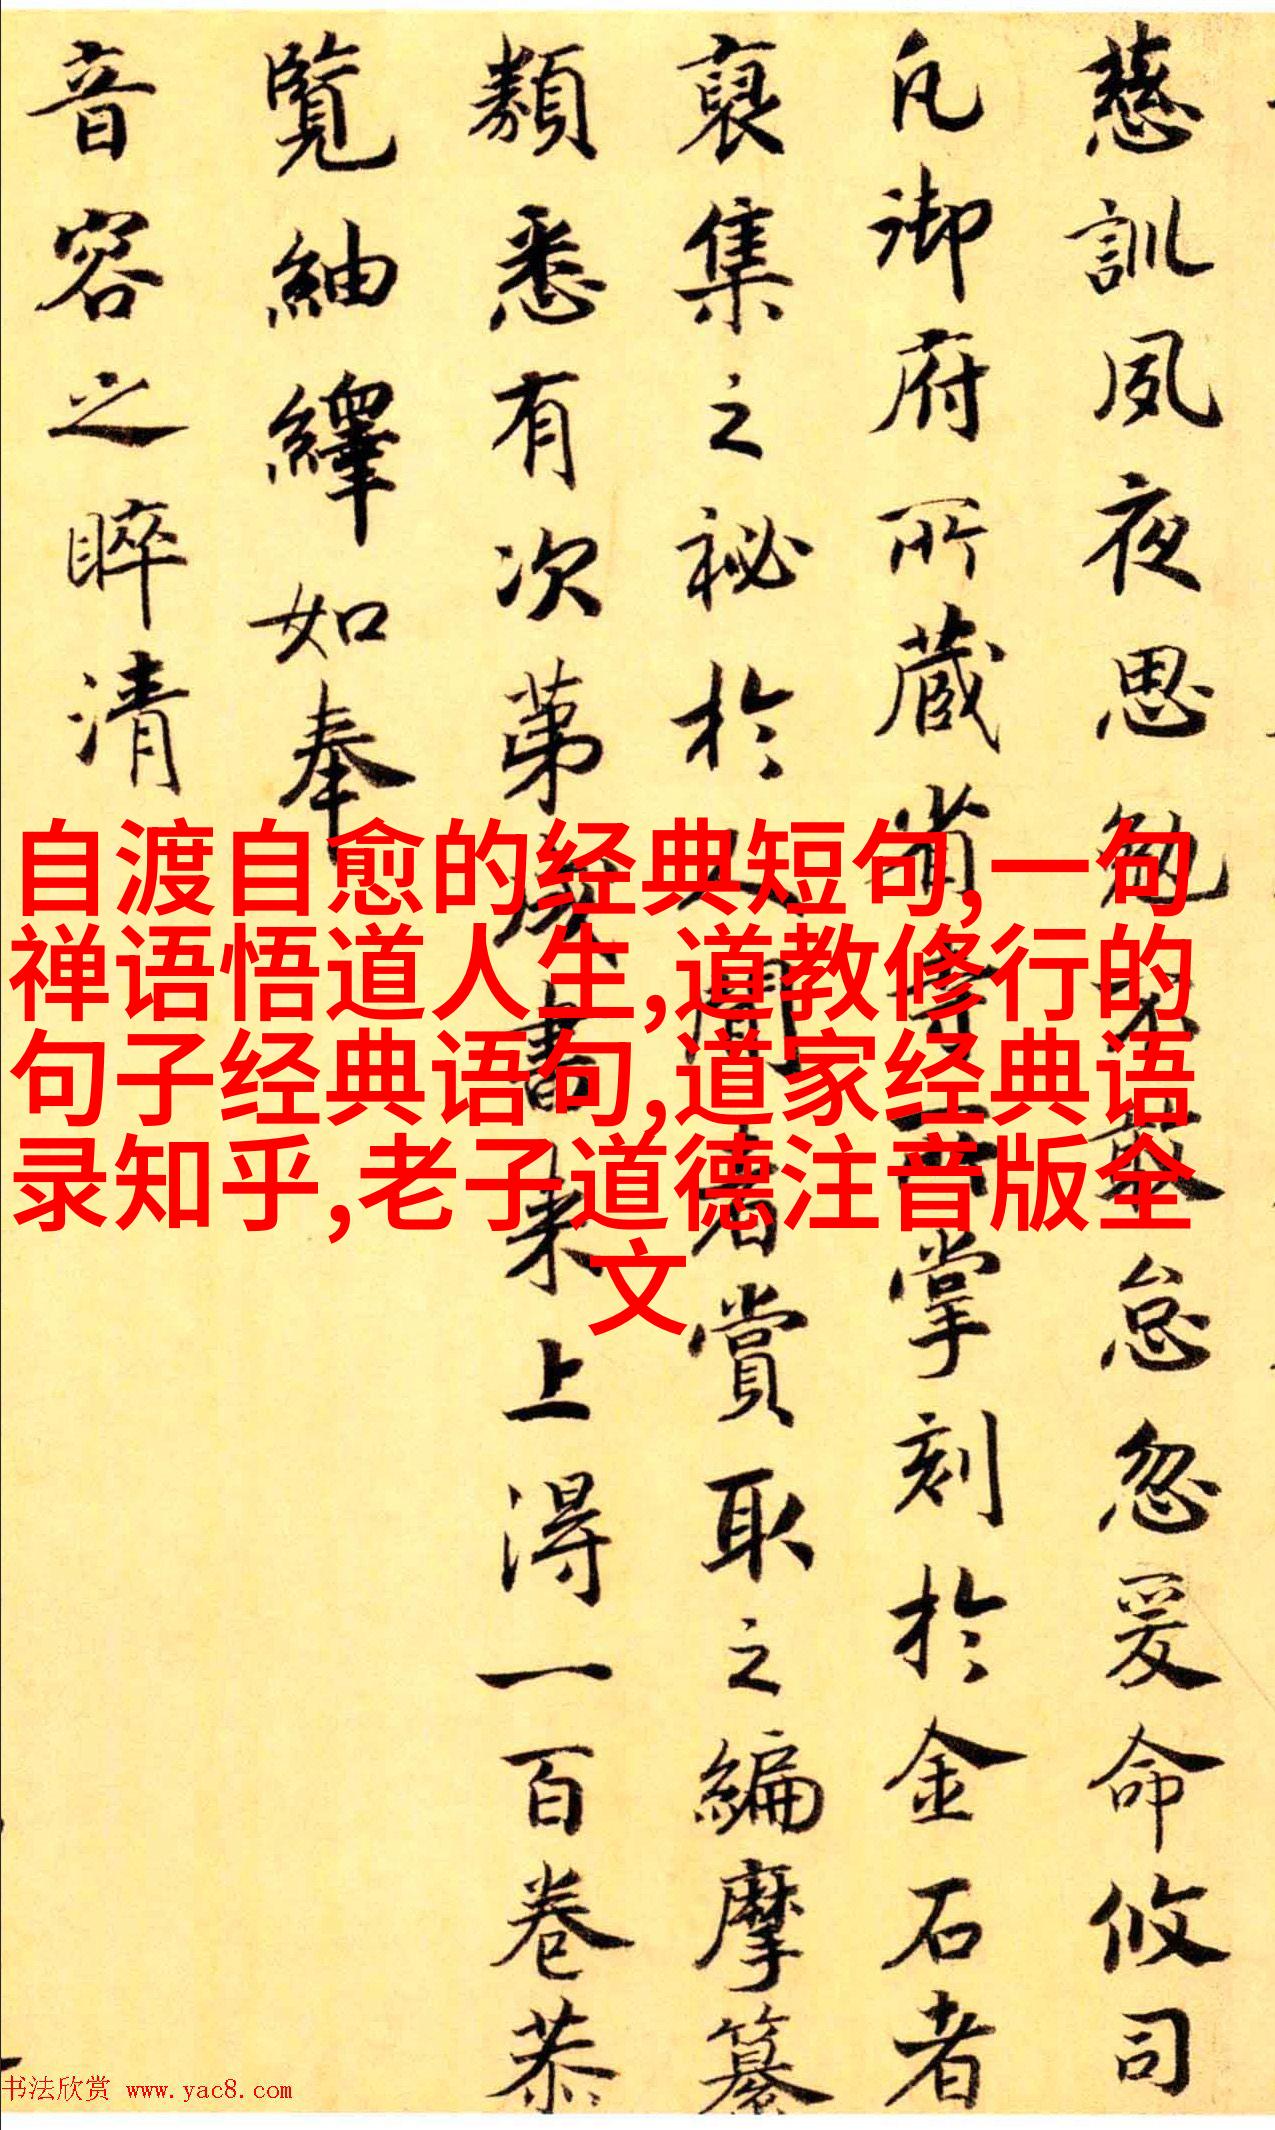 慈訓夙夜思勉不敢怠忽爰命攸司
凡御府所藏掌刻於金石者
裒集之祕於人間者賞取之編摩纂
類悉有次第書来上得一百卷恭
覽紬繹如奉
音容之睟清
自渡自愈的经典短句,一句
禅语悟道人生,道教修行的
句子经典语句,道家经典语
录知乎,老子道德注音版全
文
书法欣赏 www.yac8.com